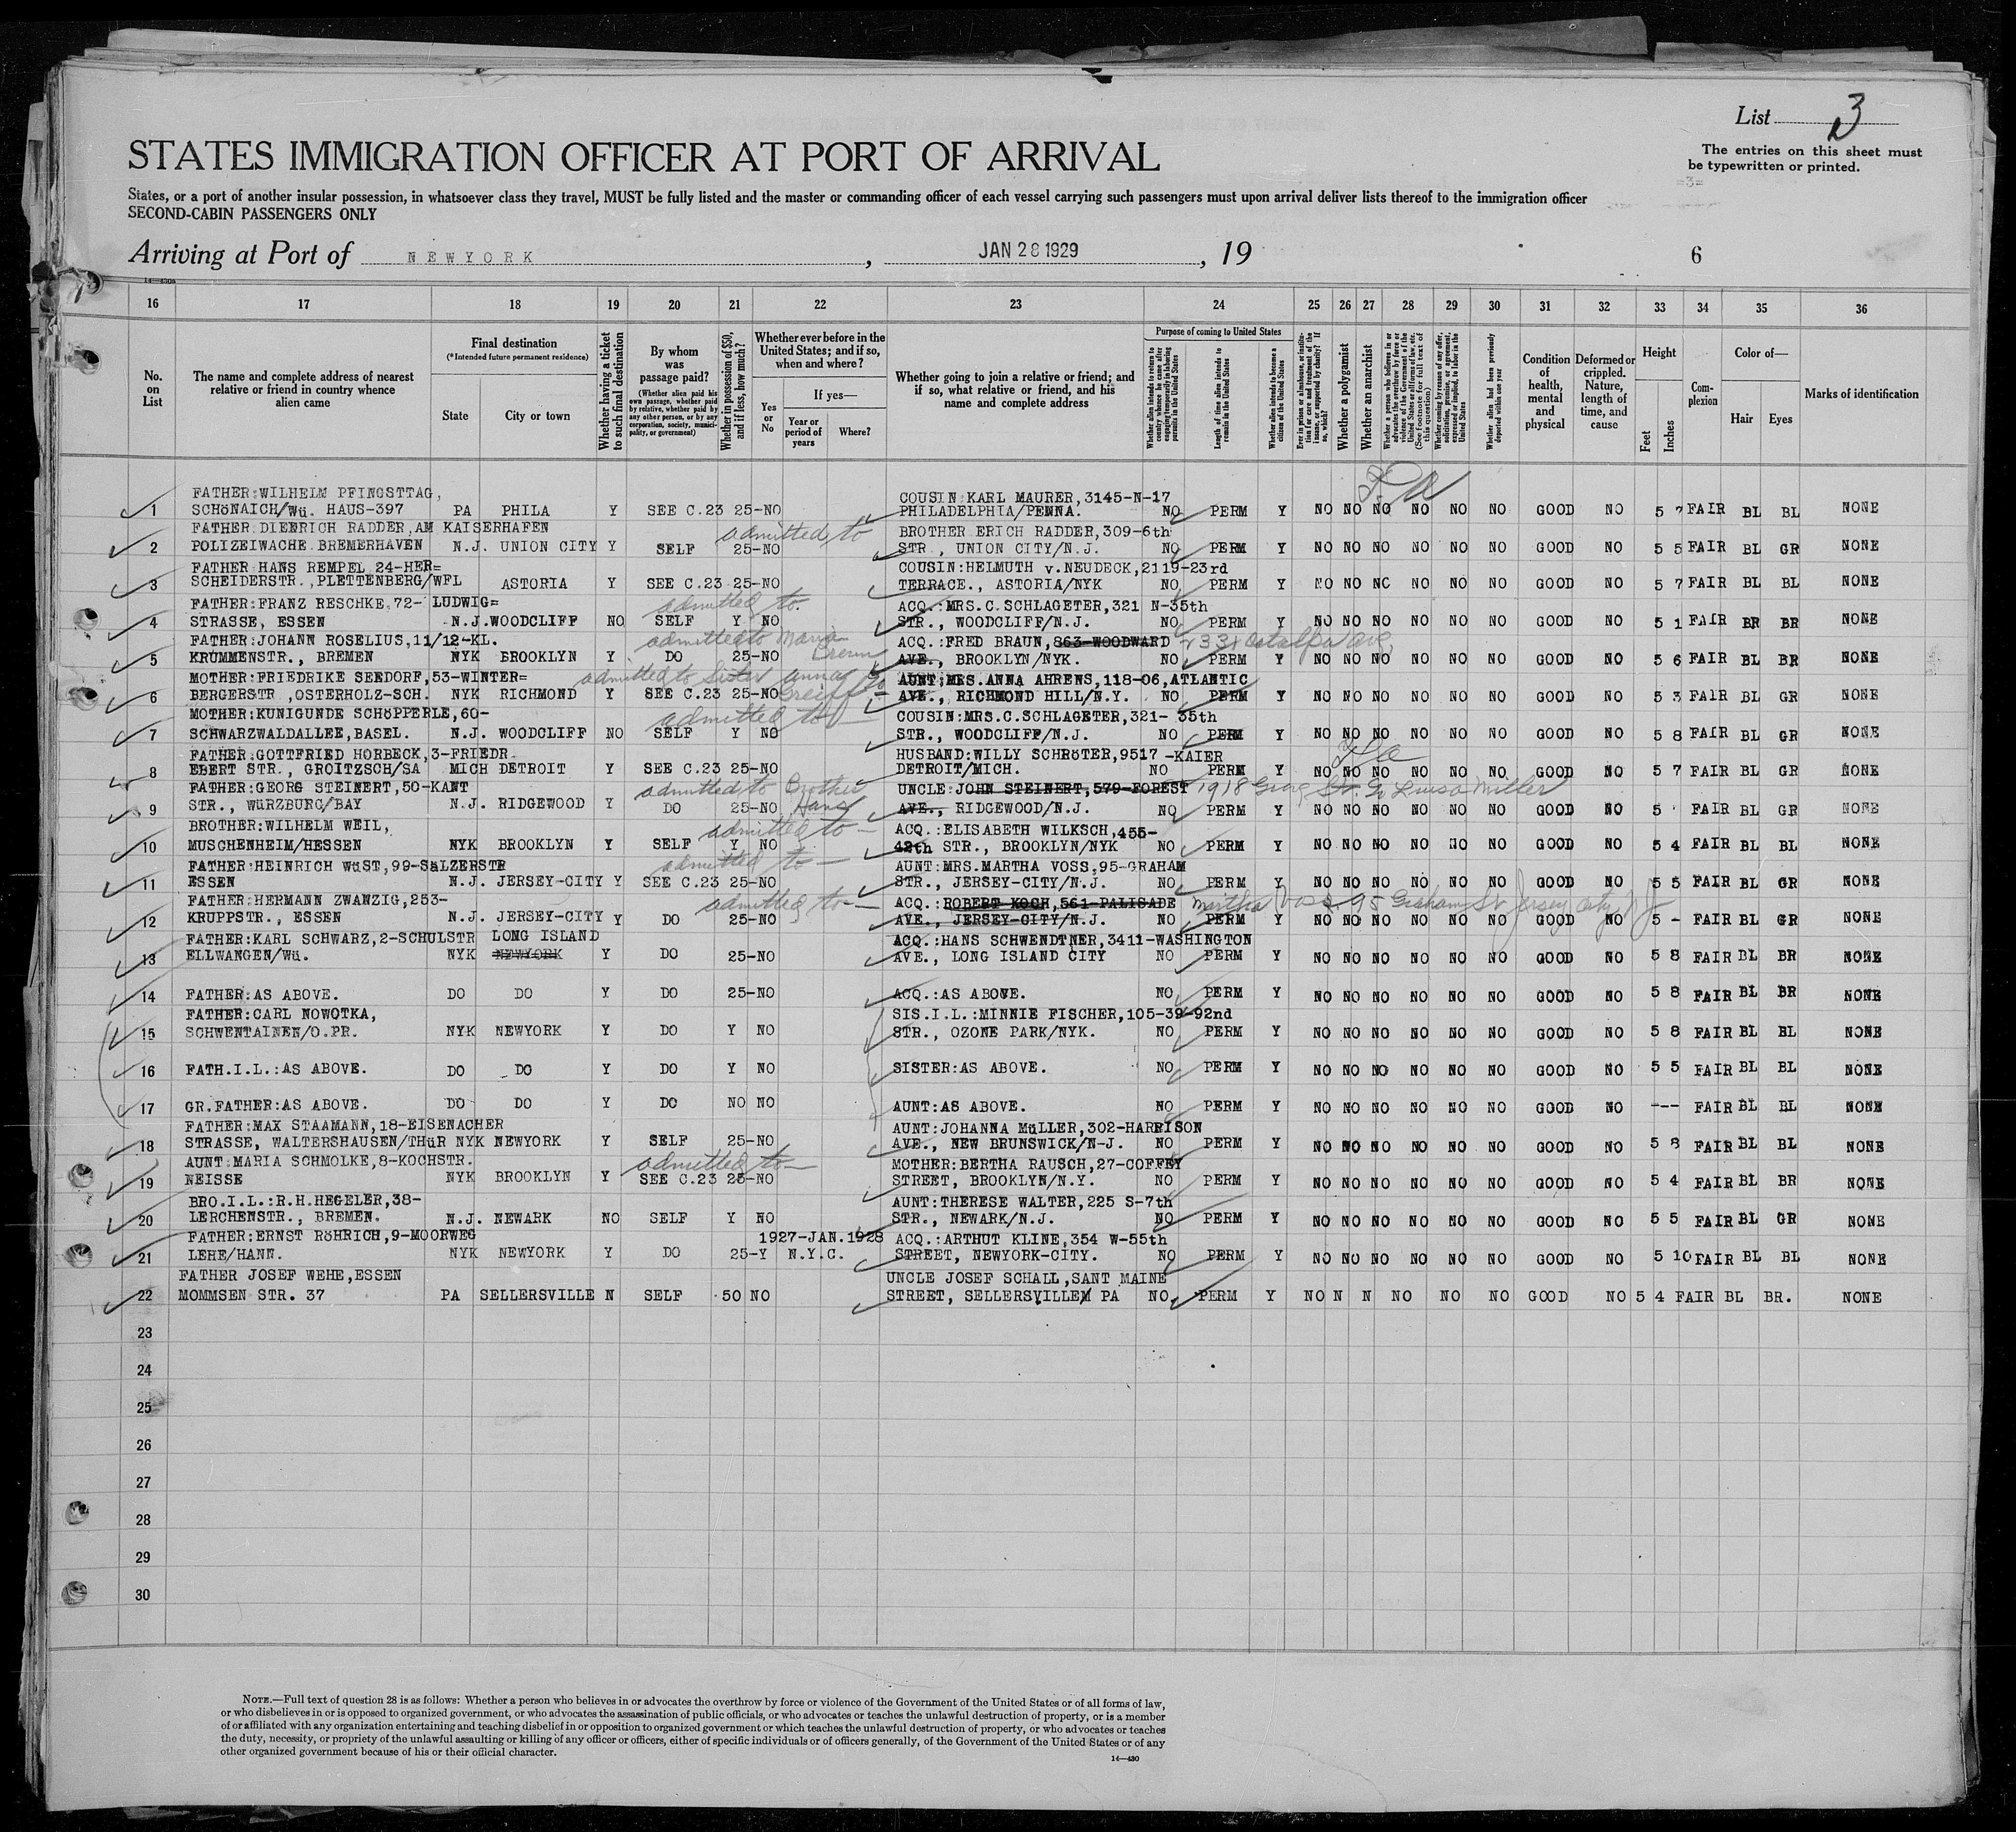 List 3
The entries on this sheet must
be typewritten or printed.
=3=
STATES IMMIGRATION OFFICER AT PORT OF ARRIVAL
States, or a port of another insular possession, in whatsoever class they travel, MUST be fully listed and the master or commanding officer of each vessel carrying such passengers must upon arrival deliver lists thereof to the immigration officer
SECOND-CABIN PASSENGERS ONLY
Arriving at Port of NEWYORK, JAN 28 1929, 19 6
16 17 18 19 20 21 22 23 24 25 26 27 28 29 30 31 32 33 34 35 36
No. on List
The name and complete address of nearest relative or friend in country whence alien came
Final destination
(*Intended future permanent residence)
State
City or town
Whether having a ticket to such final destination
By whom was passage paid?
(Whether alien paid his own passage, whether paid by relative, whether paid by any other person, or by any corporation, society, municipality, or government)
Whether in possession of $50, and if less, how much?
Whether ever before in the United States; and if so, when and where?
Yes or No
If yes—
Year or period of years
Where?
Whether going to join a relative or friend; and if so, what relative or friend, and his name and complete address
Purpose of coming to United States
Whether alien intends to return to country whence he came after engaging temporarily in laboring pursuits in the United States
Length of time alien intends to remain in the United States
Whether alien intends to become a citizen of the United States
Ever in prison or almshouse, or institution for care and treatment of the insane, or supported by charity? If so, which?
Whether a polygamist
Whether an anarchist
Whether a person who believes in or advocates the overthrow by force or violence of the Government of the United States or all forms of law, etc. (See footnote for full text of this question)
Whether coming by reason of any offer, solicitation, promise, or agreement, expressed or implied, to labor in the United States
Whether alien had been previously deported within one year
Condition of health, mental and physical
Deformed or crippled. Nature, length of time, and cause
Height
Feet
Inches
Complexion
Color of—
Hair
Eyes
Marks of identification
FATHER:WILHELM PFINGSTTAG, COUSIN:KARL MAURER,3145-N-17
1 SCHöNAICH/Wü. HAUS-397 PA PHILA Y SEE C.23 25-NO PHILADELPHIA/PENNA. NO PERM Y NO NO NO NO NO NO GOOD NO 5 7 FAIR BL BL NONE
FATHER:DIEDRICH RADDER,AM KAISERHAFEN admitted to BROTHER ERICH RADDER,309-6th
2 POLIZEIWACHE BREMERHAVEN N.J. UNION CITY Y SELF 25-NO STR., UNION CITY/N.J. NO PERM Y NO NO NO NO NO NO GOOD NO 5 5 FAIR BL GR NONE
FATHER HANS REMPEL 24-HER= COUSIN:HELMUTH v.NEUDECK,2119-23rd
3 SCHEIDERSTR.,PLETTENBERG/WFL ASTORIA Y SEE C.23 25-NO TERRACE., ASTORIA/NYK NO PERM Y NO NO NO NO NO NO GOOD NO 5 7 FAIR BL BL NONE
FATHER:FRANZ RESCHKE,72- LUDWIG= admitted to ACQ.:MRS.C.SCHLAGETER,321 N-35th
4 STRASSE, ESSEN N.J. WOODCLIFF NO SELF Y NO STR., WOODCLIFF/N.J. NO PERM Y NO NO NO NO NO NO GOOD NO 5 1 FAIR BR BR NONE
FATHER:JOHANN ROSELIUS,11/12-KL. admitted to Maria ACQ.:FRED BRAUN,863-WOODWARD
5 KRUMMENSTR., BREMEN NYK BROOKLYN Y DO 25-NO AVE., BROOKLYN/NYK. NO PERM Y NO NO NO NO NO NO GOOD NO 5 6 FAIR BL BR NONE
MOTHER:FRIEDRIKE SEEDORF,53-WINTER= admitted to Sister Anna AUNT:MRS.ANNA AHRENS,118-06,ATLANTIC
6 BERGERSTR.,OSTERHOLZ-SCH. NYK RICHMOND Y SEE C.23 25-NO AVE., RICHMOND HILL/N.Y. NO PERM Y NO NO NO NO NO NO GOOD NO 5 3 FAIR BL GR NONE
MOTHER:KUNIGUNDE SCHöPPERLE,60- admitted to COUSIN:MRS.C.SCHLAGETER,321- 35th
7 SCHWARZWALDALLEE,BASEL. N.J. WOODCLIFF NO SELF Y NO STR., WOODCLIFF/N.J. NO PERM Y NO NO NO NO NO NO GOOD NO 5 8 FAIR BL GR NONE
FATHER:GOTTFRIED HORBECK,3-FRIEDR. HUSBAND:WILLY SCHRöTER,9517 -KAIER
8 EBERT STR., GROITZSCH/SA MICH DETROIT Y SEE C.23 25-NO DETROIT/MICH. NO PERM Y NO NO NO NO NO NO GOOD NO 5 7 FAIR BL GR NONE
FATHER:GEORG STEINERT,50-KANT admitted to Brother UNCLE:JOHN STEINERT,579-FOREST 1918 Miller
9 STR., WüRZBURG/BAY N.J. RIDGEWOOD Y DO 25-NO AVE., RIDGEWOOD/N.J. NO PERM Y NO NO NO NO NO NO GOOD NO 5 FAIR BL GR NONE
BROTHER:WILHELM WEIL, admitted to ACQ.:ELISABETH WILKSCH,455-
10 MUSCHENHEIM/HESSEN NYK BROOKLYN Y SELF Y NO 42th STR., BROOKLYN/NYK NO PERM Y NO NO NO NO NO NO GOOD NO 5 4 FAIR BL BL NONE
FATHER:HEINRICH WüST,99-SALZERSTR admitted to AUNT:MRS.MARTHA VOSS,95-GRAHAM
11 ESSEN N.J. JERSEY-CITY Y SEE C.23 25-NO STR., JERSEY-CITY/N.J. NO PERM Y NO NO NO NO NO NO GOOD NO 5 5 FAIR BL GR NONE
FATHER:HERMANN ZWANZIG,253- admitted to ACQ.:ROBERT KOCH,561-PALISADE Martha Voss 95 Graham St Jersey City N J
12 KRUPPSTR., ESSEN N.J. JERSEY-CITY Y DO 25-NO AVE., JERSEY-CITY/N.J. NO PERM Y NO NO NO NO NO NO GOOD NO 5 - FAIR BL GR NONE
FATHER:KARL SCHWARZ,2-SCHULSTR LONG ISLAND ACQ.:HANS SCHWENDTNER,3411-WASHINGTON
13 ELLWANGEN/Wü. NYK NEWYORK Y DO 25-NO AVE., LONG ISLAND CITY NO PERM Y NO NO NO NO NO NO GOOD NO 5 8 FAIR BL BR NONE
14 FATHER:AS ABOVE. DO DO Y DO 25-NO ACQ.:AS ABOVE. NO PERM Y NO NO NO NO NO NO GOOD NO 5 8 FAIR BL BR NONE
FATHER:CARL NOWOTKA, SIS.I.L.:MINNIE FISCHER,105-39-92nd
15 SCHWENTAINEN/O.PR. NYK NEWYORK Y DO Y NO STR., OZONE PARK/NYK. NO PERM Y NO NO NO NO NO NO GOOD NO 5 8 FAIR BL BL NONE
16 FATH.I.L.:AS ABOVE. DO DO Y DO Y NO SISTER:AS ABOVE. NO PERM Y NO NO NO NO NO NO GOOD NO 5 5 FAIR BL BL NONE
17 GR.FATHER:AS ABOVE. DO DO Y DO NO NO AUNT:AS ABOVE. NO PERM Y NO NO NO NO NO NO GOOD NO --- FAIR BL BL NONE
FATHER:MAX STAAMANN,18-EISENACHER AUNT:JOHANNA MüLLER,302-HARRISON
18 STRASSE, WALTERSHAUSEN/THüR NYK NEWYORK Y SELF 25-NO AVE., NEW BRUNSWICK/N-J. NO PERM Y NO NO NO NO NO NO GOOD NO 5 8 FAIR BL BL NONE
AUNT:MARIA SCHMOLKE,8-KOCHSTR. admitted to MOTHER:BERTHA RAUSCH,27-COFFEY
19 NEISSE NYK BROOKLYN Y SEE C.23 25-NO STREET, BROOKLYN/N.Y. NO PERM Y NO NO NO NO NO NO GOOD NO 5 4 FAIR BL BR NONE
BRO.I.L.:R.H.HEGELER,38- AUNT:THERESE WALTER,225 S-7th
20 LERCHENSTR., BREMEN. N.J. NEWARK NO SELF Y NO STR., NEWARK/N.J. NO PERM Y NO NO NO NO NO NO GOOD NO 5 5 FAIR BL GR NONE
FATHER:ERNST RöHRICH,9-MOORWEG 1927-JAN.1928 ACQ.:ARTHUT KLINE,354 W-55th
21 LEHE/HANN. NYK NEWYORK Y DO 25-Y N.Y.C. STREET, NEWYORK-CITY. NO PERM Y NO NO NO NO NO NO GOOD NO 5 10 FAIR BL BL NONE
FATHER JOSEF WEHE,ESSEN UNCLE JOSEF SCHALL,SANT MAINE
22 MOMMSEN STR. 37 PA SELLERSVILLE N SELF 50 NO STREET, SELLERSVILLE PA NO PERM Y NO N N NO NO NO GOOD NO 5 4 FAIR BL BR. NONE
23
24
25
26
27
28
29
30
NOTE.—Full text of question 28 is as follows: Whether a person who believes in or advocates the overthrow by force or violence of the Government of the United States or of all forms of law,
or who disbelieves in or is opposed to organized government, or who advocates the assassination of public officials, or who advocates or teaches the unlawful destruction of property, or is a member
of or affiliated with any organization entertaining and teaching disbelief in or opposition to organized government or which teaches the unlawful destruction of property, or who advocates or teaches
the duty, necessity, or propriety of the unlawful assaulting or killing of any officer or officers, either of specific individuals or of officers generally, of the Government of the United States or of any
other organized government because of his or their official character.
14—430